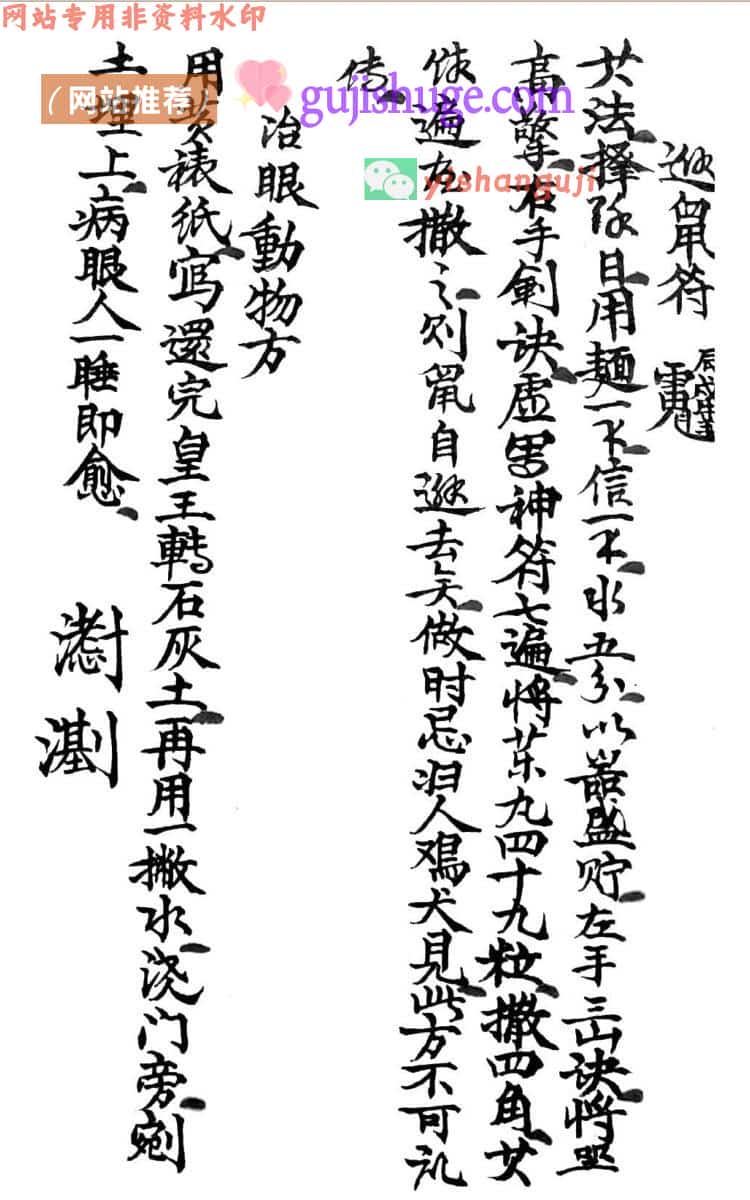 网站专用非资料水印
(网站推荐)
gujishuge.com
yishanguji
遯鼠符
其法择除日用麺一不信一不水五分以器盛贮左手三山诀将
高擎右手剣诀虚男神符七遍将茶丸四十九粒撒四角其
馀遍处撒之则鼠自遯去矣做时忌妇人鸡犬見此方不可乱
传
治眼動物方
用黄裱纸寫還完皇王轉石灰土再用一撇水浇门旁剜
土埋上病眼人一睡即愈